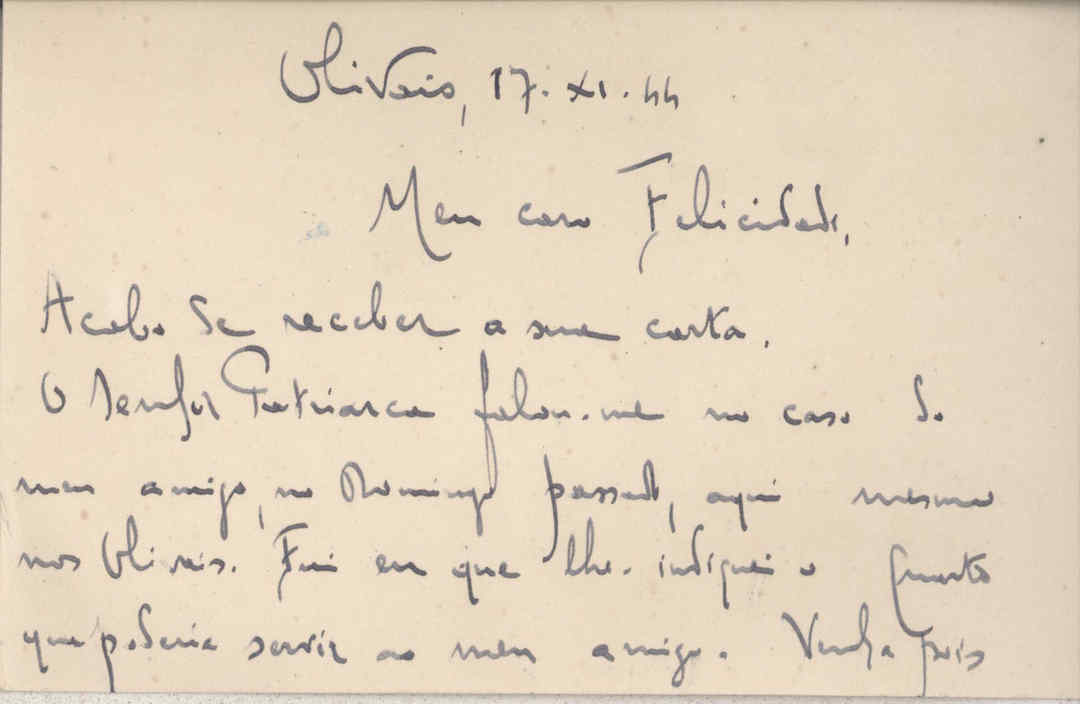 Olivais, 17.XI.44
Meu caro Felicidade,
Acabo de receber a sua carta.
O Senhor Patriarca falou-me no caso do
meu amigo, no Domingo passado, aqui mesmo
nos Olivais. Fui eu que lhe indiquei o quarto
que poderia servir ao meu amigo. Venha pois